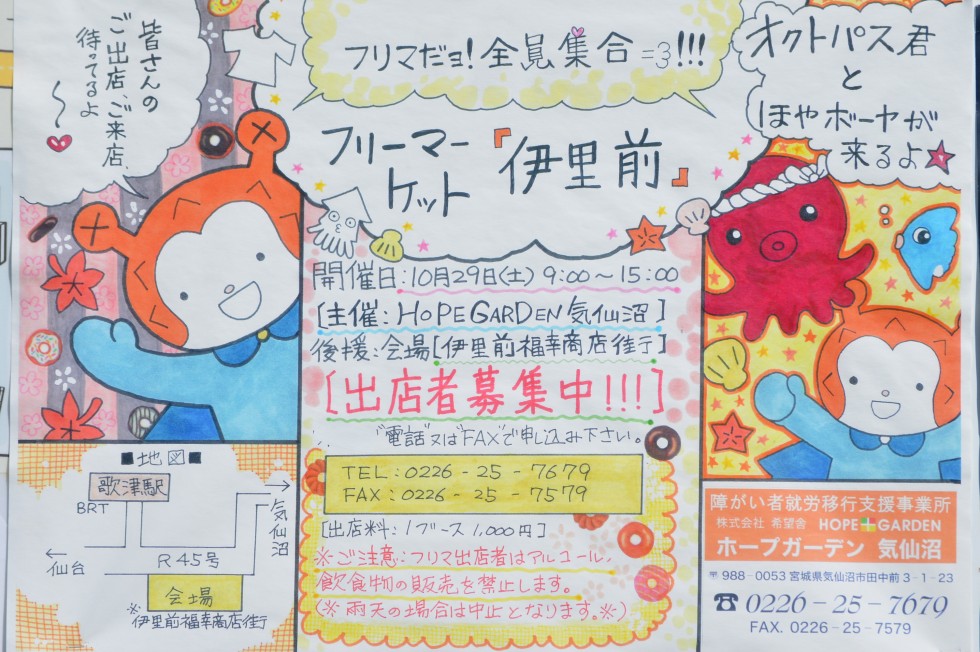 皆さんの
ご出店、ご来店、
待ってるよ
フリマだョ!全員集合=3!!!
オクトパス君
と
ほやボーヤが
来るよ★
フリーマー
ケット
『伊里前』
開催日:10月29日(土) 9:00〜15:00
[主催:HOPE GARDEN 気仙沼]
後援:会場[伊里前福幸商店街〒]
[出店者募集中!!!]
"電話"又は"FAX"で申し込み下さい。
TEL:0226-25-7679
FAX:0226-25-7579
[出店料:1ブース1,000円]
※ご注意:フリマ出店者はアルコール、
飲食物の販売を禁止します。
(※雨天の場合は中止となります。※)
■地図■
歌津駅
BRT
気仙沼
仙台
R45号
会場
※
伊里前福幸商店街
障がい者就労移行支援事業所
株式会社 希望舎 HOPE GARDEN
ホープガーデン 気仙沼
〒988-0053 宮城県気仙沼市田中前3-1-23
☎0226-25-7679
FAX. 0226-25-7579